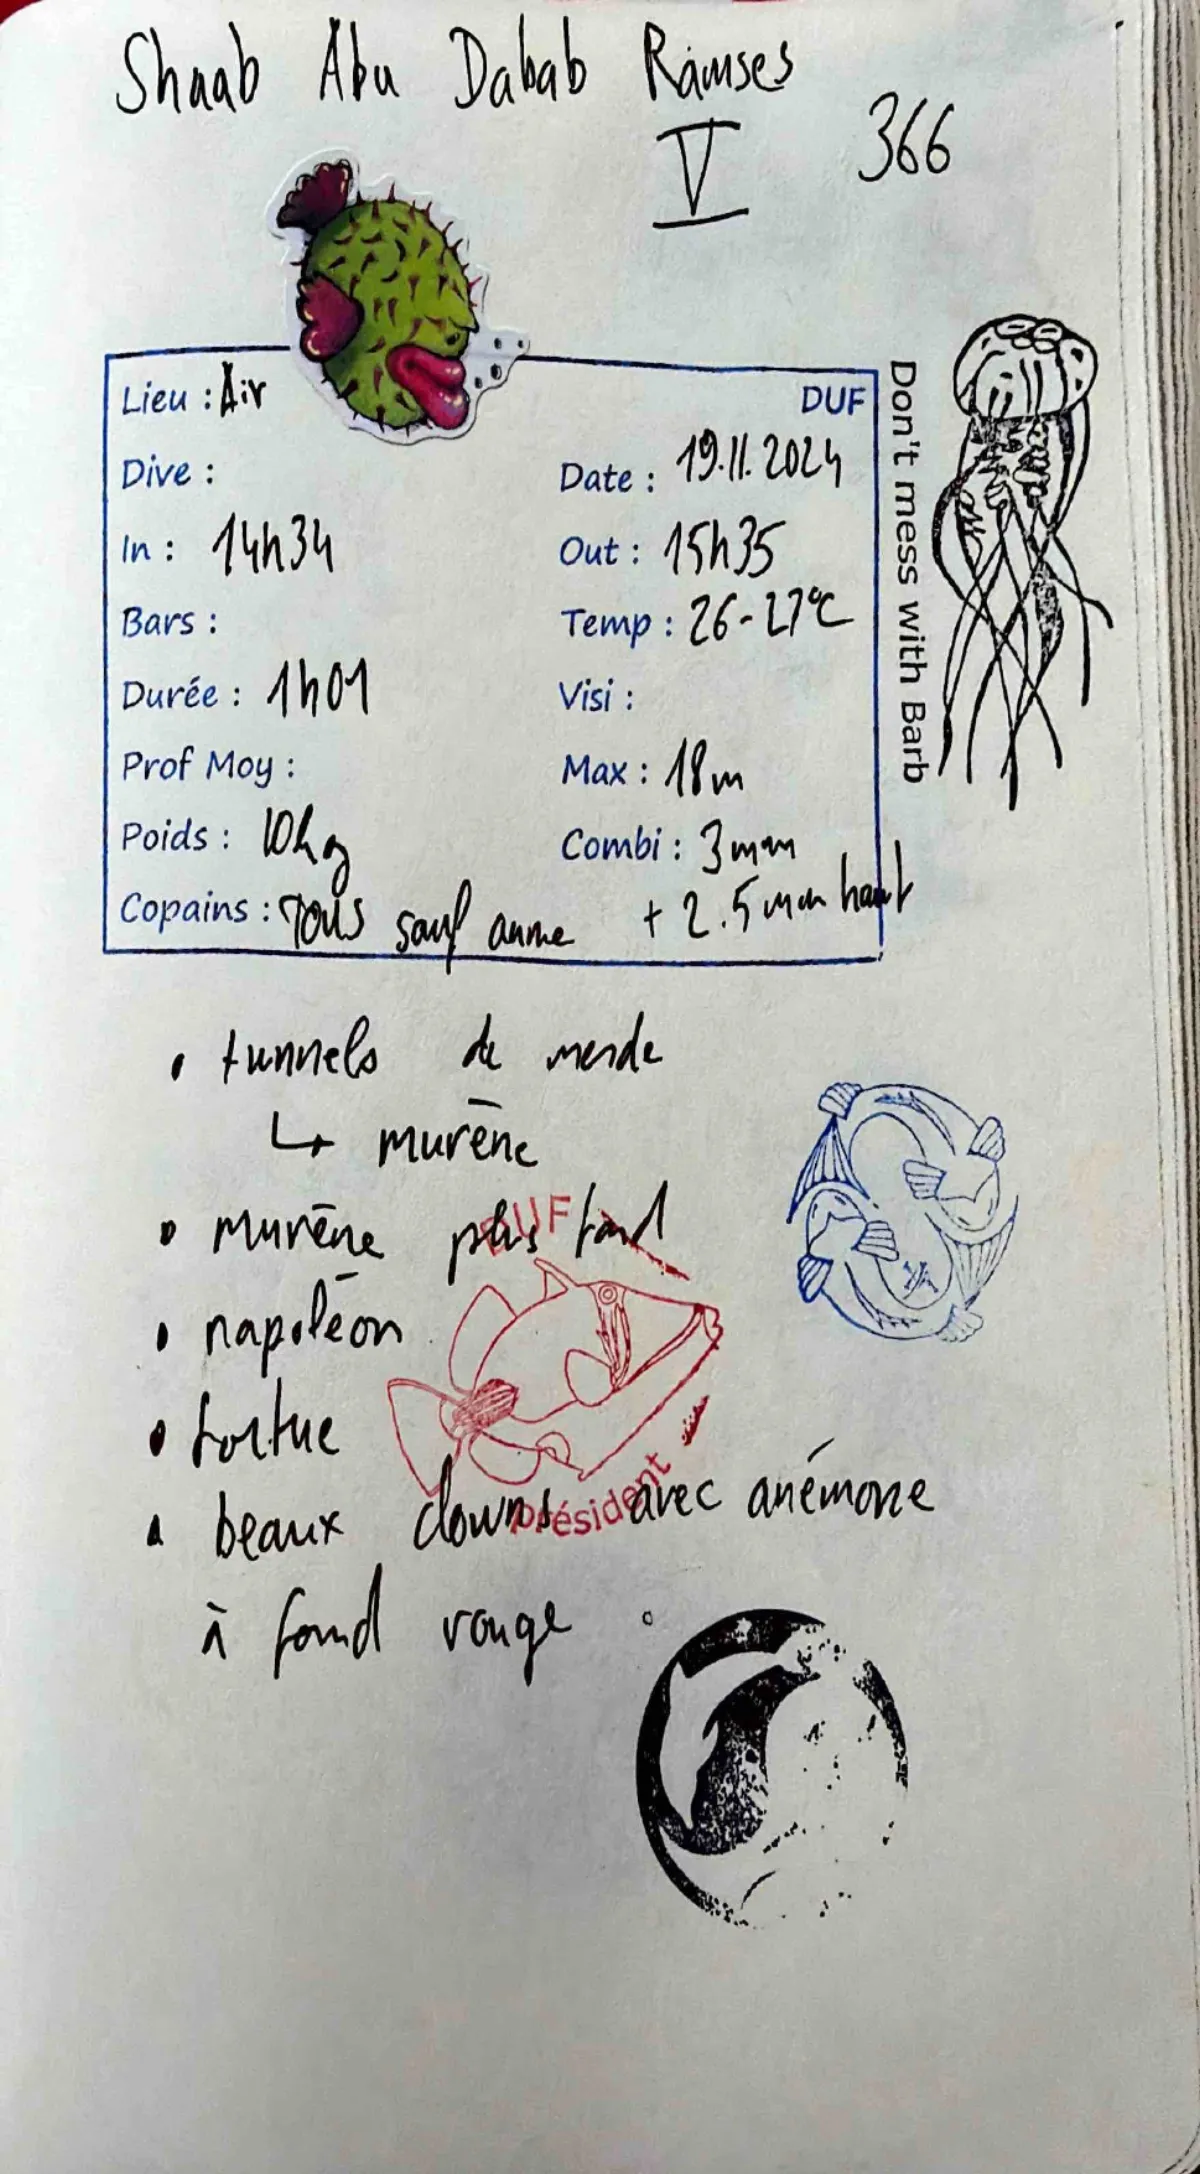 Shaab Abu Dabab Ramses
V 366
Lieu : Air DUF
Dive : Date : 19.11.2024
In : 14h34 Out : 15h35
Bars : Temp : 26-27°C
Durée : 1h01 Visi :
Prof Moy : Max : 18m
Poids : 10kg Combi : 3mm
Copains : Tous sauf anne + 2.5mm haut
Don't mess with Barb
• tunnels de merde
↳ murène
• murène plus tard
DUF
• napoléon
• tortue
• beaux clowns avec anémone
président
à fond rouge